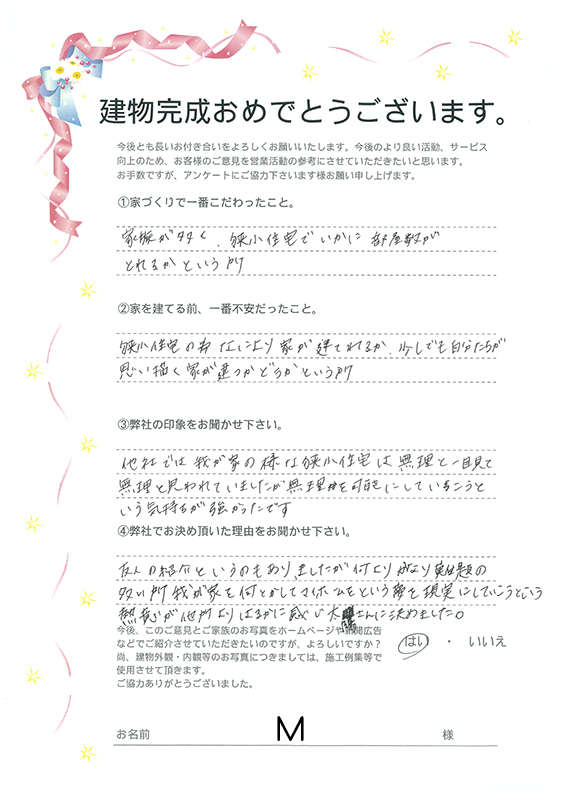 建物完成おめでとうございます。
今後とも長いお付き合いをよろしくお願いいたします。今後のより良い活動、サービス
向上のため、お客様のご意見を営業活動の参考にさせていただきたいと思います。
お手数ですが、アンケートにご協力下さいます様お願い申し上げます。
①家づくりで一番こだわったこと。
家族が多く、狭小住宅でいかに部屋数が
とれるかという所
②家を建てる前、一番不安だったこと。
狭小住宅の為なにより家が建てれるか、少しでも自分たちが
思い描く家が建つかどうかという所
③弊社の印象をお聞かせ下さい。
他社では我が家の様な狭小住宅は無理と一目見て
無理と思われていましたが無理を可能にしていこうと
いう気持ちが強かったです
④弊社でお決め頂いた理由をお聞かせ下さい。
友人の紹介というのもありましたが何より
多い所我が家を何とかしてマイホームをという夢を現実にしていこうという
熱意が他所よりはるかに感じ大 さんに決めました。
今後、このご意見とご家族のお写真をホームページや新聞広告
などでご紹介させていただきたいのですが、よろしいですか？
はい ・ いいえ
尚、建物外観・内観等のお写真につきましては、施工例集等で
使用させて頂きます。
ご協力ありがとうございました。
お名前 M 様